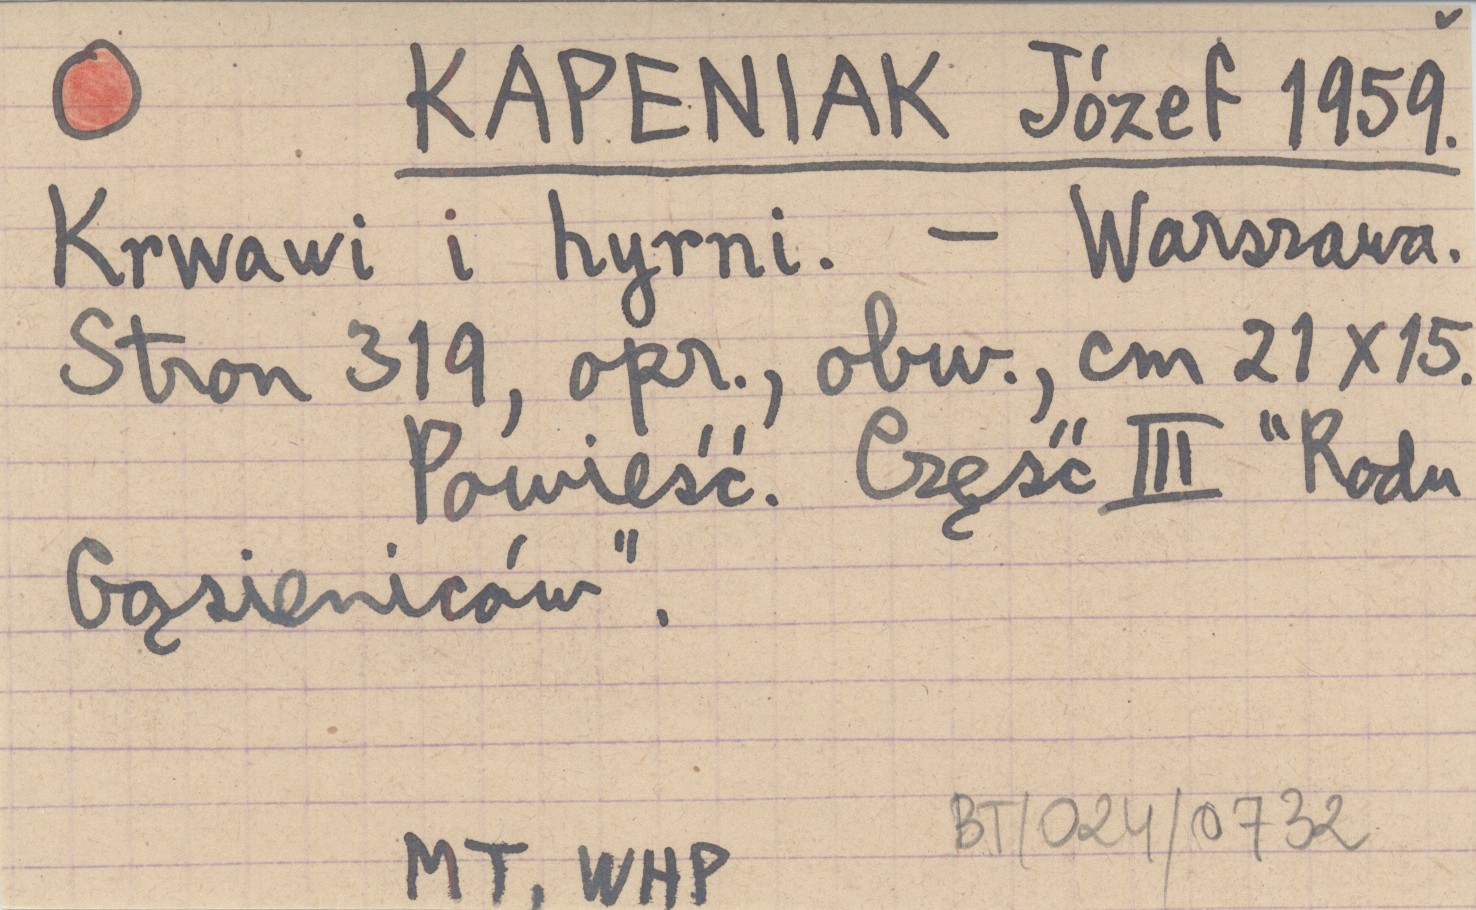 KAPENIAK Józef 1959.
Krwawi i hyrni. — Warszawa.
Stron 319, opr., obw., cm 21x15.
Powieść. Część III "Rodu
Gąsieniców".
BT/024/0732
MT, WHP